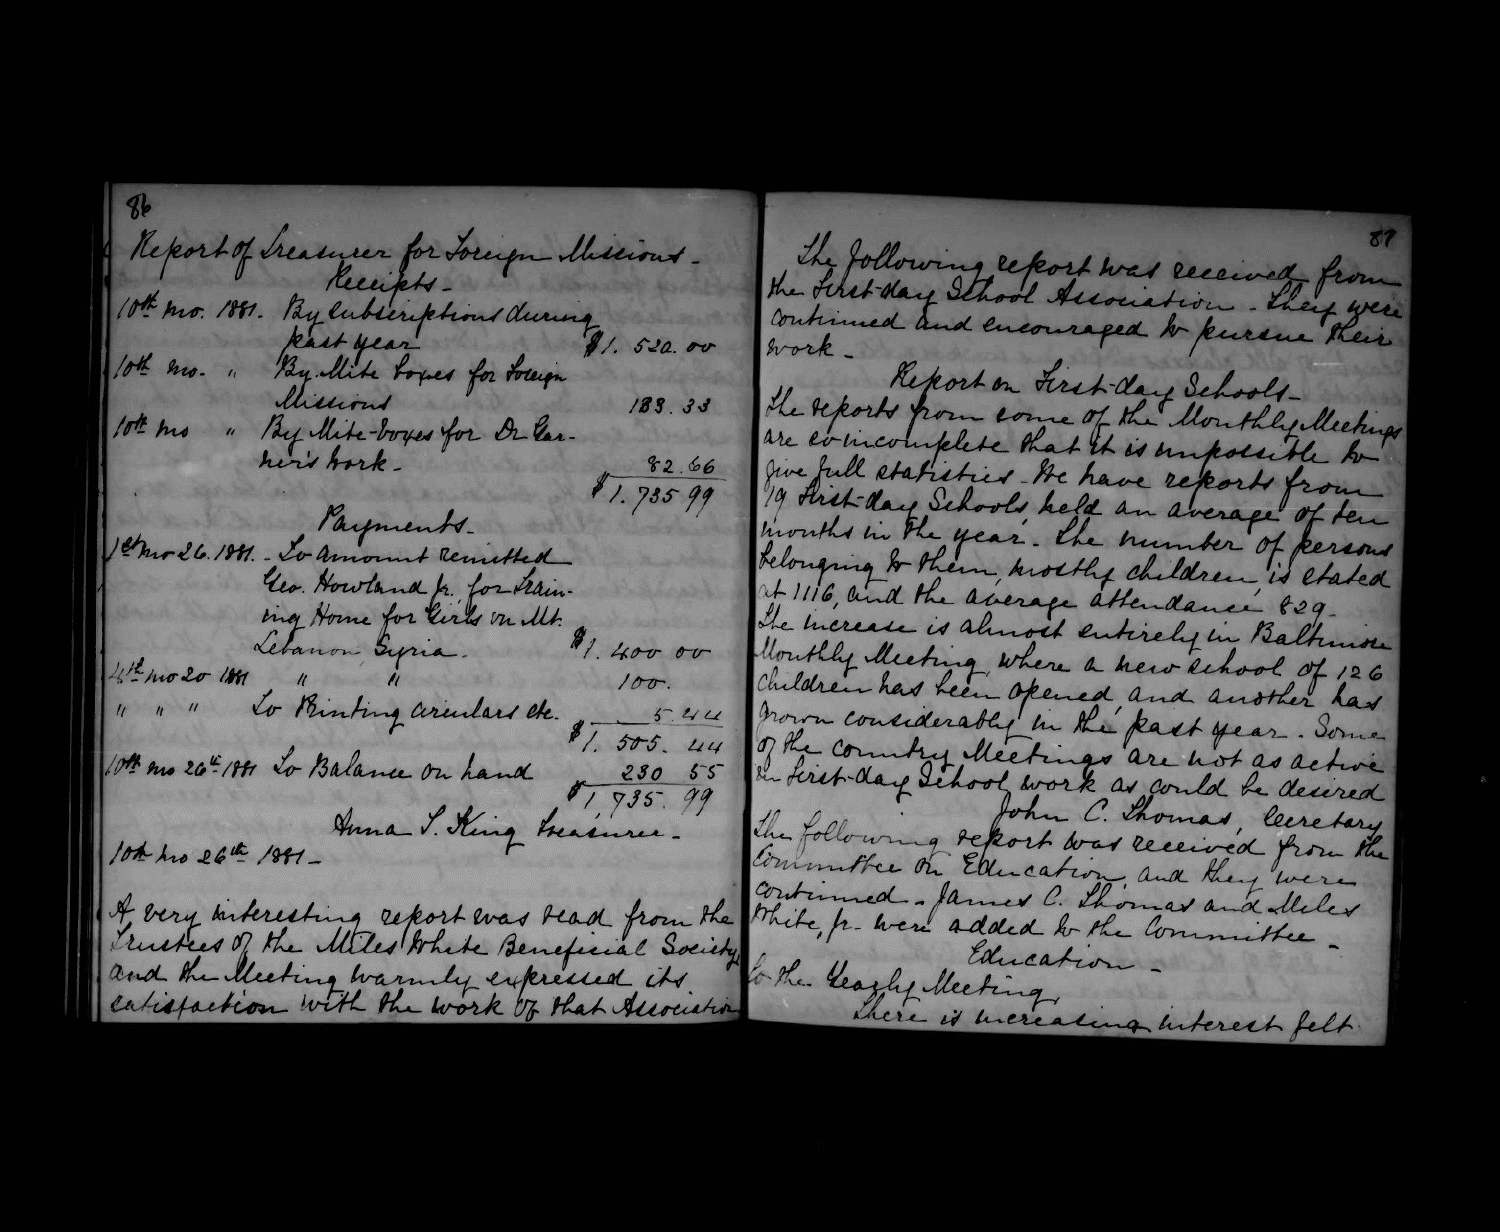 86
Report of Treasurer for Foreign Missions -
Receipts -
10th mo. 1881. By subscriptions during
past year $1. 520. 00
10th mo. " By Mite boxes for Foreign
Missions 133. 33
10th mo " By Mite-boxes for Dr Gar-
ner's work - 82. 66
$1. 735 99
Payments -
1st mo 26. 1881. - To amount remitted
Geo. Howland Jr., for Train-
ing Home for Girls on Mt.
Lebanon, Syria. $1. 400 00
4th mo 20 1881 " " 100.
" " " To Printing circulars etc. 5. 44
$1. 505. 44
10th mo 26th 1881 To Balance on hand 230 55
$1, 735. 99
Anna S. King Treasurer -
10th mo 26th 1881 -
A very interesting report was read from the
Trustees of the Miles White Beneficial Society,
and the Meeting warmly expressed its
satisfaction with the work of that Association
87
The following report was received from
the First-day School Association - They were
continued and encouraged to pursue their
work -
Report on First-day Schools -
The reports from some of the Monthly Meetings
are so incomplete that it is impossible to
give full statistics - We have reports from
19 First-day Schools, held an average of ten
months in the year. The number of persons
belonging to them, mostly children, is stated
at 1116, and the average attendance 829 -
The increase is almost entirely in Baltimore
Monthly Meeting, where a new school of 126
children has been opened, and another has
grown considerably in the past year. Some
of the country Meetings are not as active
in First-day School work as could be desired
John C. Thomas, Secretary
The following report was received from the
Committee on Education, and they were
continued - James C. Thomas and Miles
White, Jr. were added to the Committee -
Education -
To the Yearly Meeting,
There is increasing interest felt